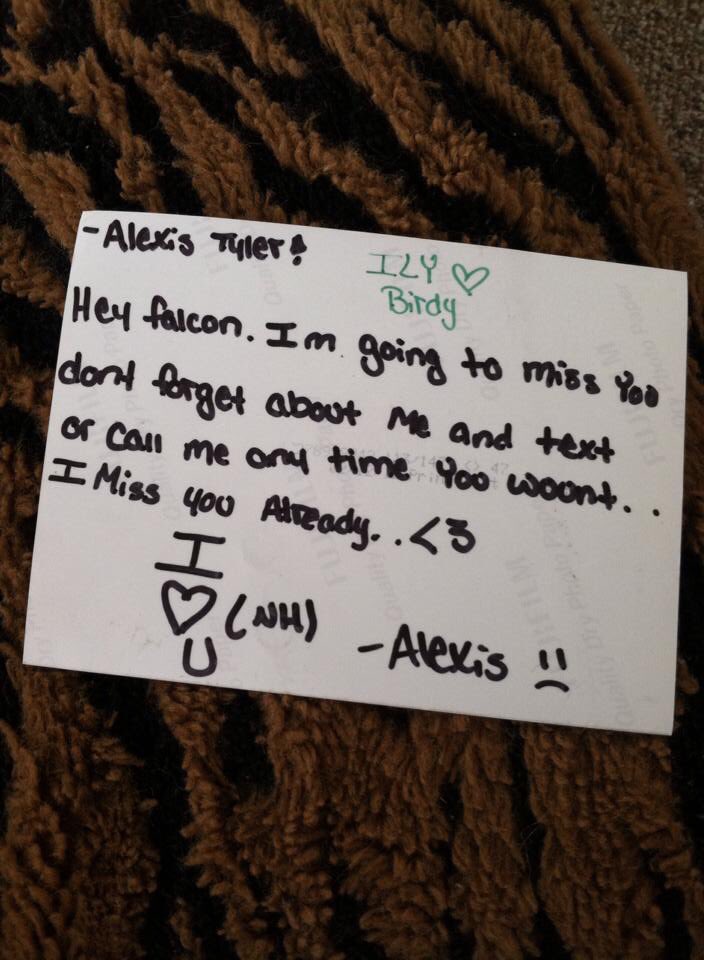 -Alexis Tyler!
ILY ♡
Birdy
Hey falcon. Im going to miss You
dont forget about Me and text
or call me any time You woont..
I Miss you Already..<3
I
♡ (NH)
U
-Alexis :(
FUJIFILM
Quality Dry Photo Paper